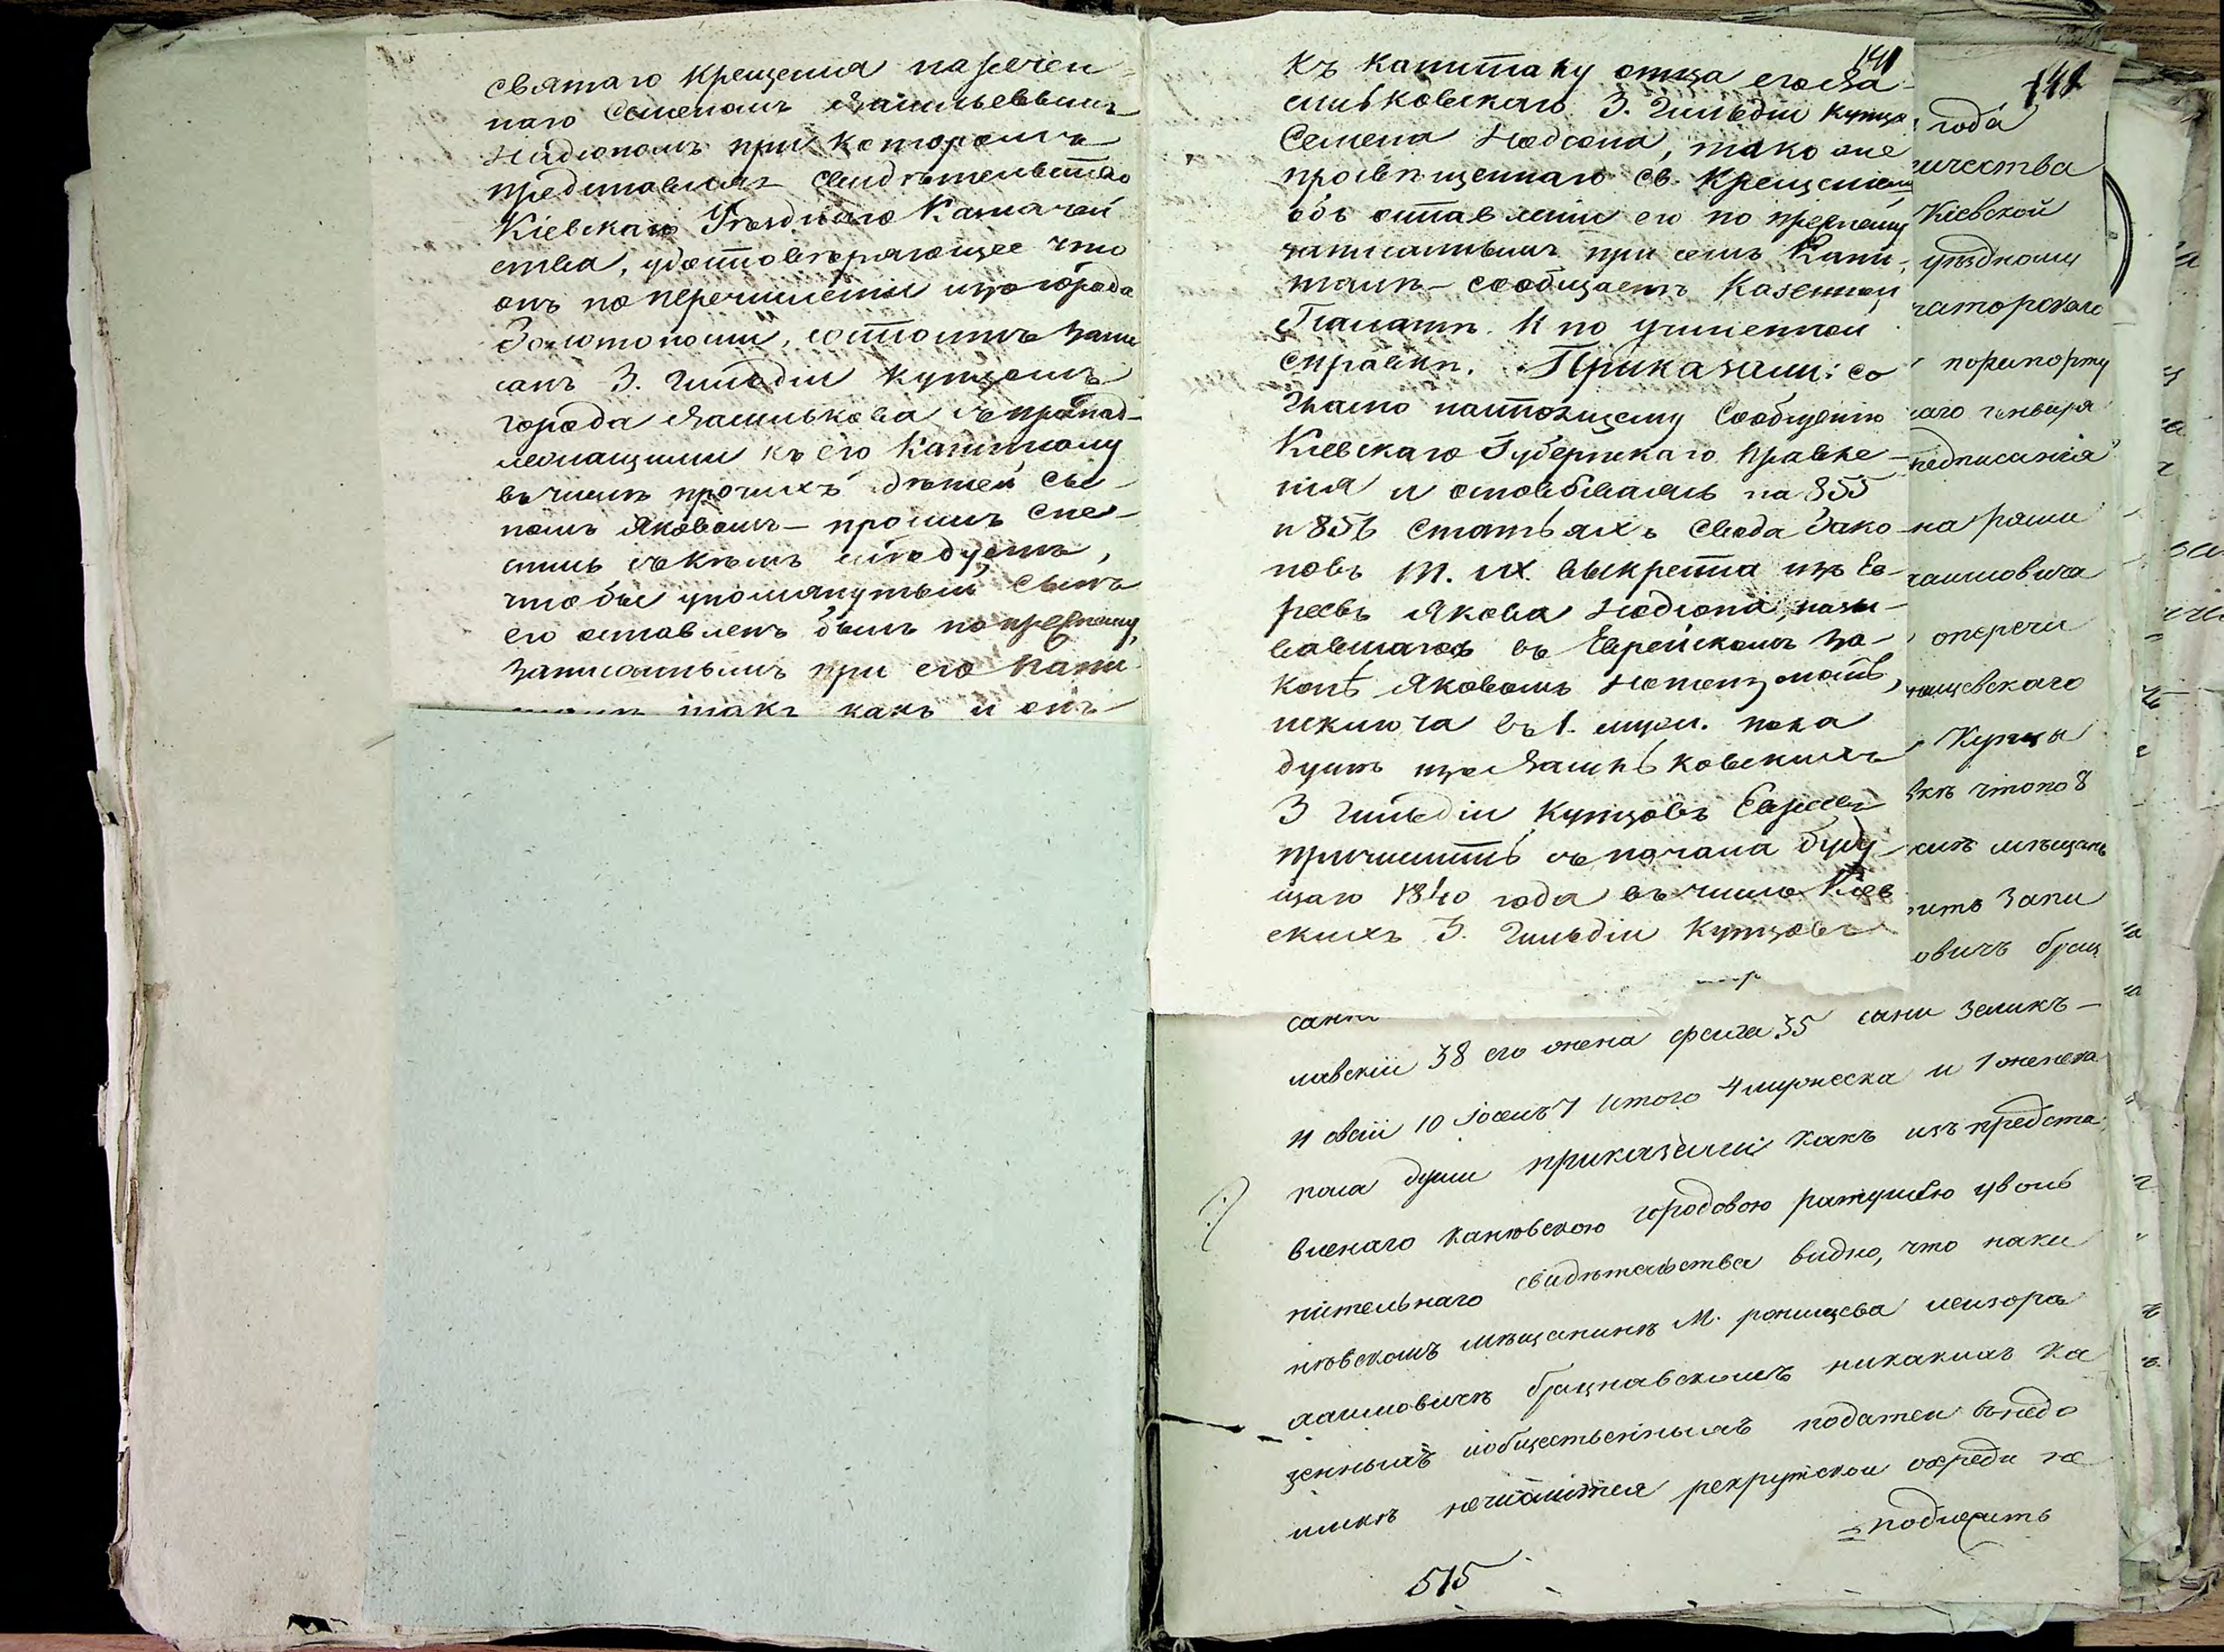 святаго крещенія наречен-
наго Семеномъ Васильевымъ
Надсономъ при которомъ
представляя свидѣтельство
Кіевскаго Уѣзднаго Казначей
ства, удостовѣряющее что
онъ по перечисленіи изъ города
Золотоноши, состоитъ запи
санъ 3. гильдіи купцомъ
города Василькова съ принад-
лежащими къ его капиталу
въ числѣ прочихъ дѣтей сы-
номъ Яковомъ – проситъ сне-
стись съ кѣмъ слѣдуетъ,
чтобы упомянутый сынъ
его оставленъ былъ по прежнему
записаннымъ при его капи-
талѣ такъ какъ и онъ
141
къ капиталу отца его Ва-
сильковскаго 3. гильдіи купца
Семена Надсона, тако же
просвѣщеннаго св. крещеніемъ
объ оставленіи его по прежнему
записаннымъ при семъ Капи-
талѣ – сообщаетъ Казенной
Палатѣ. И по учиненной
справкѣ. Приказали: со
гласно настоящему сообщенію
Кіевскаго Губернскаго Правле-
нія и основываясь на 855
и 856 статьяхъ свода Зако-
новъ т. IX. выкреста изъ Ев-
реевъ Якова Надсона, назы-
вавшагося въ Еврейскомъ за-
конѣ Яковомъ
исключа въ 1. муж. пола
душѣ изъ Васильковскихъ
3 гильдіи купцовъ Евреевъ
причислить съ начала буду-
щаго 1840 года въ число Кіев
скихъ 3. гильдіи купцовъ
142
года
ичества
Кіевской
уѣздному
раторскаго
по рапорту
наго генваря
предписанія
на раши
хаимовича
о перечи
нищевскаго
Купца
что по 8
мѣщанъ
запи
овичъ брац
лавскій 38 его жена фейга 35 сыни Зеликъ –
и овсій 10 Іосъ 7 Итого 4 мужеска и 1 женска
пола души приказали: какъ изъ предста
вленаго каневскою городовою ратушею уволь
нительнаго свидѣтельства видно, что на ка
невскомъ мѣщанинѣ М. ронищева лейзора
хаимовичѣ брацлавскомъ никакихъ ка
зенныхъ и общественныхъ податей внедо
имкѣ нечислится рекрутской очереди не
= подлежитъ
515